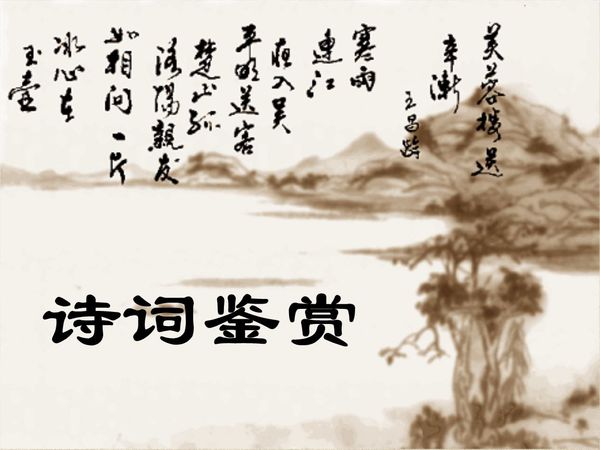 芙蓉樓送
辛漸
王昌齡
寒雨
連江
夜入吳
平明送客
楚山孤
洛陽親友
如相問一片
冰心在
玉壺
诗词鉴赏